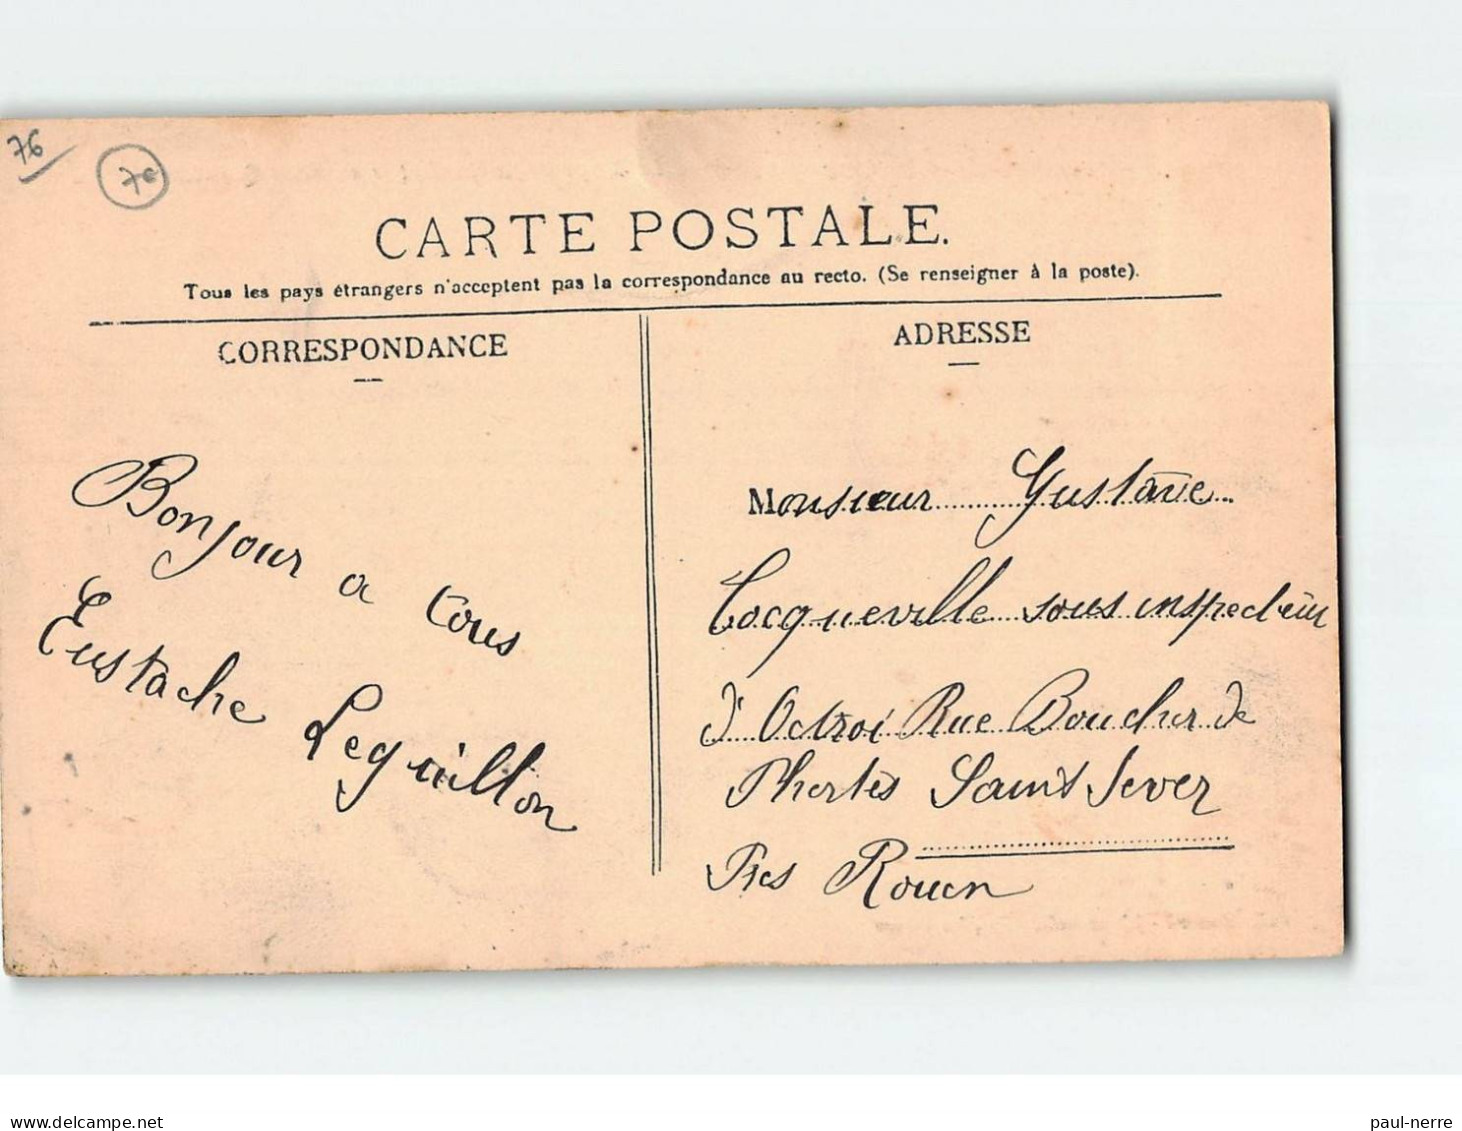 76
7e
CARTE POSTALE.
Tous les pays étrangers n'acceptent pas la correspondance au recto. (Se renseigner à la poste).
CORRESPONDANCE
Bonjour a tous
Eustache Leguillon
ADRESSE
Monsieur Gustave
Tocqueville sous inspecteur
d'Octroi Rue Boucher de
Phertes Saint Sever
Pres Rouen
paul-nerre